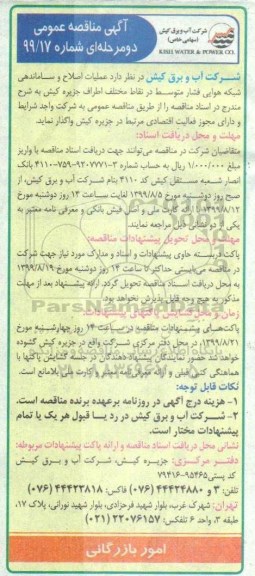 شرکت آب و برق کیش
(سهامی خاص)
KISH WATER & POWER CO.
آگهی مناقصه عمومی
دو مرحله‌ای شماره ۹۹/۱۷
شرکت آب و برق کیش در نظر دارد عملیات اصلاح و ساماندهی
شبکه هوایی فشار متوسط در نقاط مختلف اطراف جزیره کیش به شرح
مندرج در اسناد مناقصه را از طریق مناقصه عمومی به شرکت واجد شرایط
و دارای مجوز فعالیت اقتصادی مرتبط در جزیره کیش واگذار نماید.
مهلت و محل دریافت اسناد:
متقاضیان شرکت در مناقصه می‌توانند جهت دریافت اسناد مناقصه با واریز
مبلغ ۱/۰۰۰/۰۰۰ ریال به حساب شماره ۳-۹۲۰۷۷۷۱-۷۵۹-۴۱۱۰ بانک
انصار شعبه مستقل کیش کد ۴۱۱۰ بنام شرکت آب و برق کیش، از
صبح روز دوشنبه مورخ ۱۳۹۹/۸/۵ لغایت ساعت ۱۴ روز دوشنبه مورخ
۱۳۹۹/۸/۱۲ با ارائه کارت ملی و اصل فیش بانکی و معرفی نامه معتبر به
یکی از نشانی ذیل مراجعه نمایند.
مهلت و محل تحویل پیشنهادات مناقصه:
پاکت دربسته حاوی پیشنهادات و اسناد و مدارک مورد نیاز جهت شرکت
در مناقصه می‌بایستی حداکثر تا ساعت ۱۴ روز دوشنبه مورخ ۱۳۹۹/۸/۱۹
به محل دریافت اسناد مناقصه تحویل گردد. ارائه پیشنهاد بعد از مهلت
مذکور به هیچ وجه قابل پذیرش نخواهد بود.
زمان و محل گشایش پاکتهای پیشنهادات:
پاکت‌های پیشنهادات مناقصه در ساعت ۱۴ روز چهارشنبه مورخ
در محل دفتر مرکزی شرکت واقع در جزیره کیش گشوده
خواهد شد حضور نمایندگان پیشنهاد دهندگان در جلسه گشایش پاکتها با
هماهنگی کتبی قبلی و ارائه معرفی‌نامه معتبر و کارت ملی بلامانع است.
نکات قابل توجه:
۱- هزینه درج آگهی در روزنامه برعهده برنده مناقصه است.
۲- شرکت آب و برق کیش در رد یا قبول هر یک یا تمام
پیشنهادات مختار است.
نشانی محل دریافت اسناد مناقصه و ارائه پاکت پیشنهادات مربوطه:
دفتر مرکزی: جزیره کیش، شرکت آب و برق کیش
کد پستی ۹۵۴۶۵-۷۹۴۱۶
تلفن: ۳ و ۴۴۴۲۴۸۸۰ (۰۷۶) فاکس: ۴۴۴۲۳۸۱۸ (۰۷۶)
تهران: شهرک غرب، بلوار شهید فرحزادی، بلوار شهید نورانی، پلاک ۱۷،
طبقه ۳، واحد ۶ تلفکس: ۲۲۰۷۶۱۵۷ (۰۲۱)
امور بازرگانی